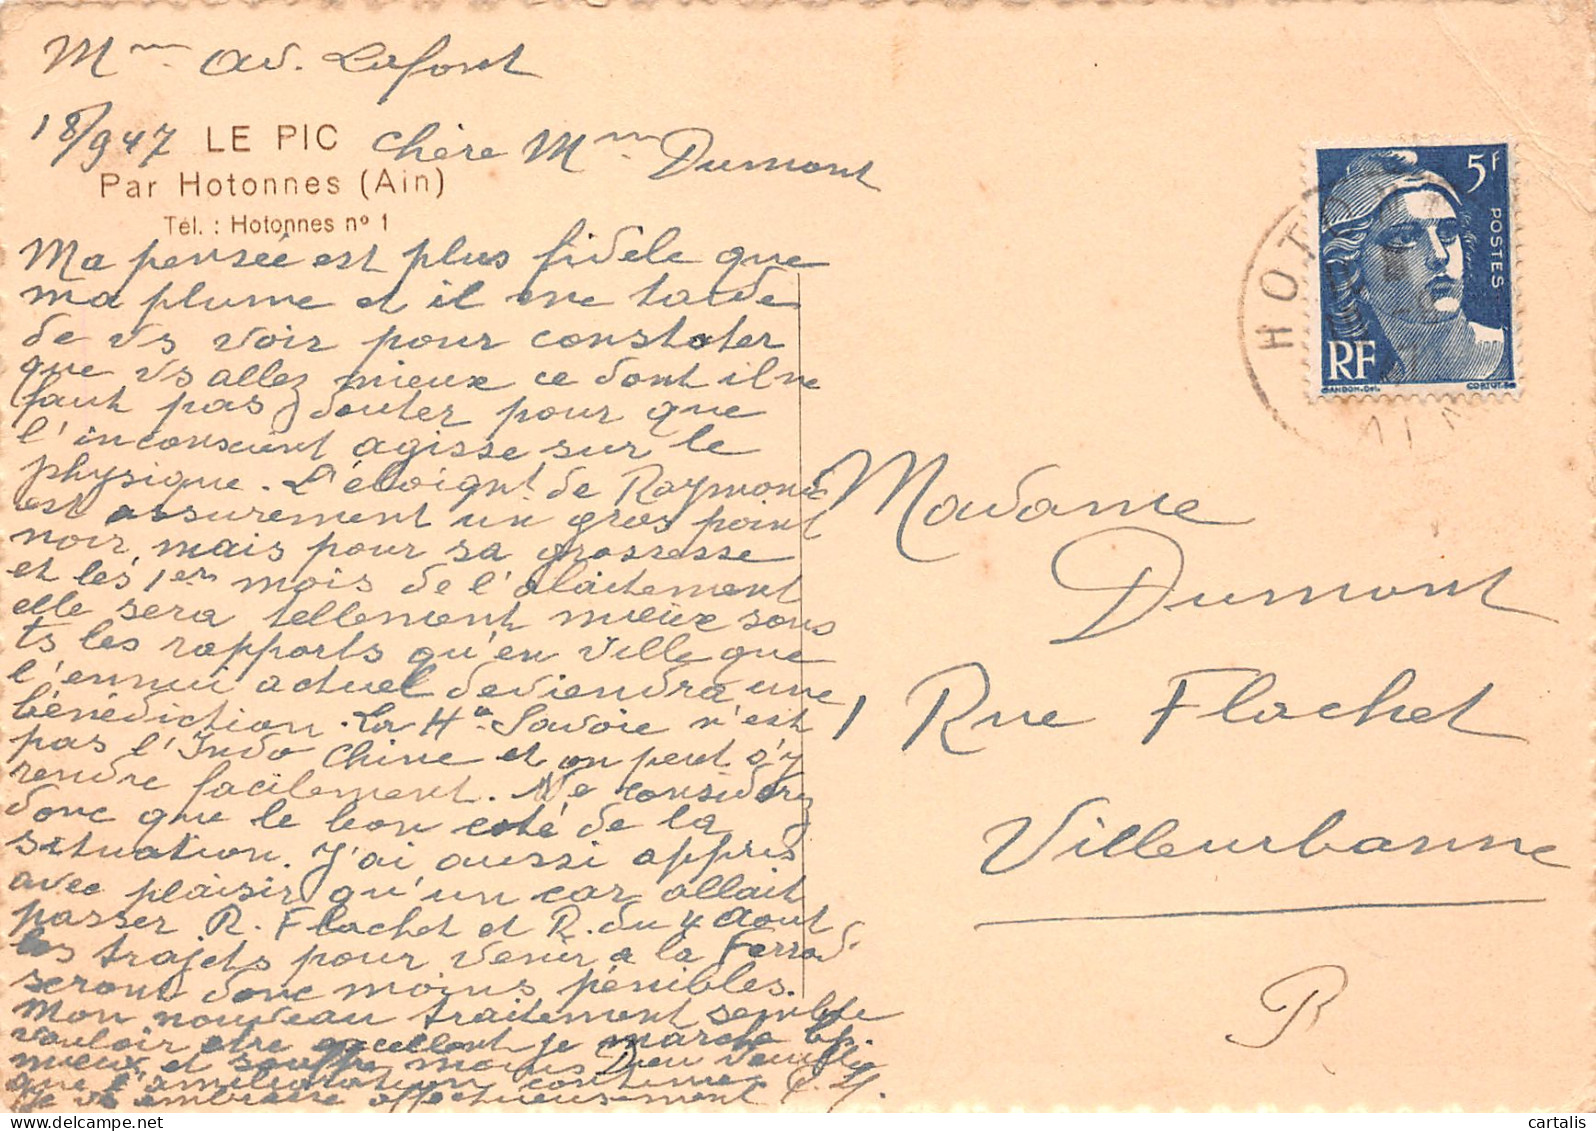 Mme Av. Lafont
18/9 47 LE PIC Chère Mme Dumont
Par Hotonnes (Ain)
Tél. : Hotonnes nº 1
Ma pensée est plus fidèle que
ma plume et il me tarde
de vs voir pour constater
que vs allez mieux ce dont il ne
faut pas douter pour que
l'inconscient agisse sur le
physique. L'éloignt de Raymonde
est assurement un gros point
noir, mais pour sa grossesse
et les 1ers mois de l'alaitement
elle sera tellement mieux sous
ts les rapports qu'en ville que
l'ennui actuel deviendra une
bénédiction. La Hte Savoie n'est
pas l'Indo Chine et on peut s'y
rendre facilement. Ne considérez
donc que le bon coté de la
situation. J'ai aussi appris
avec plaisir qu'un car allait
passer R. Flachet et R. du 4 Aout
les trajets pour venir a la Ferrad.
seront donc moins pénibles.
Mon nouveau traitement semble
vouloir etre excellent je marche bp.
mieux et souffre moins Dieu veuille
que l'amélioration continue.
Je vs embrasse affectueusement
5f
POSTES
RF
GANDON.Del.
CORTOT.Sc
HOTONNES
AIN
Madame
Dumont
1 Rue Flachet
Villeurbanne
R
www.delcampe.net
cartalis